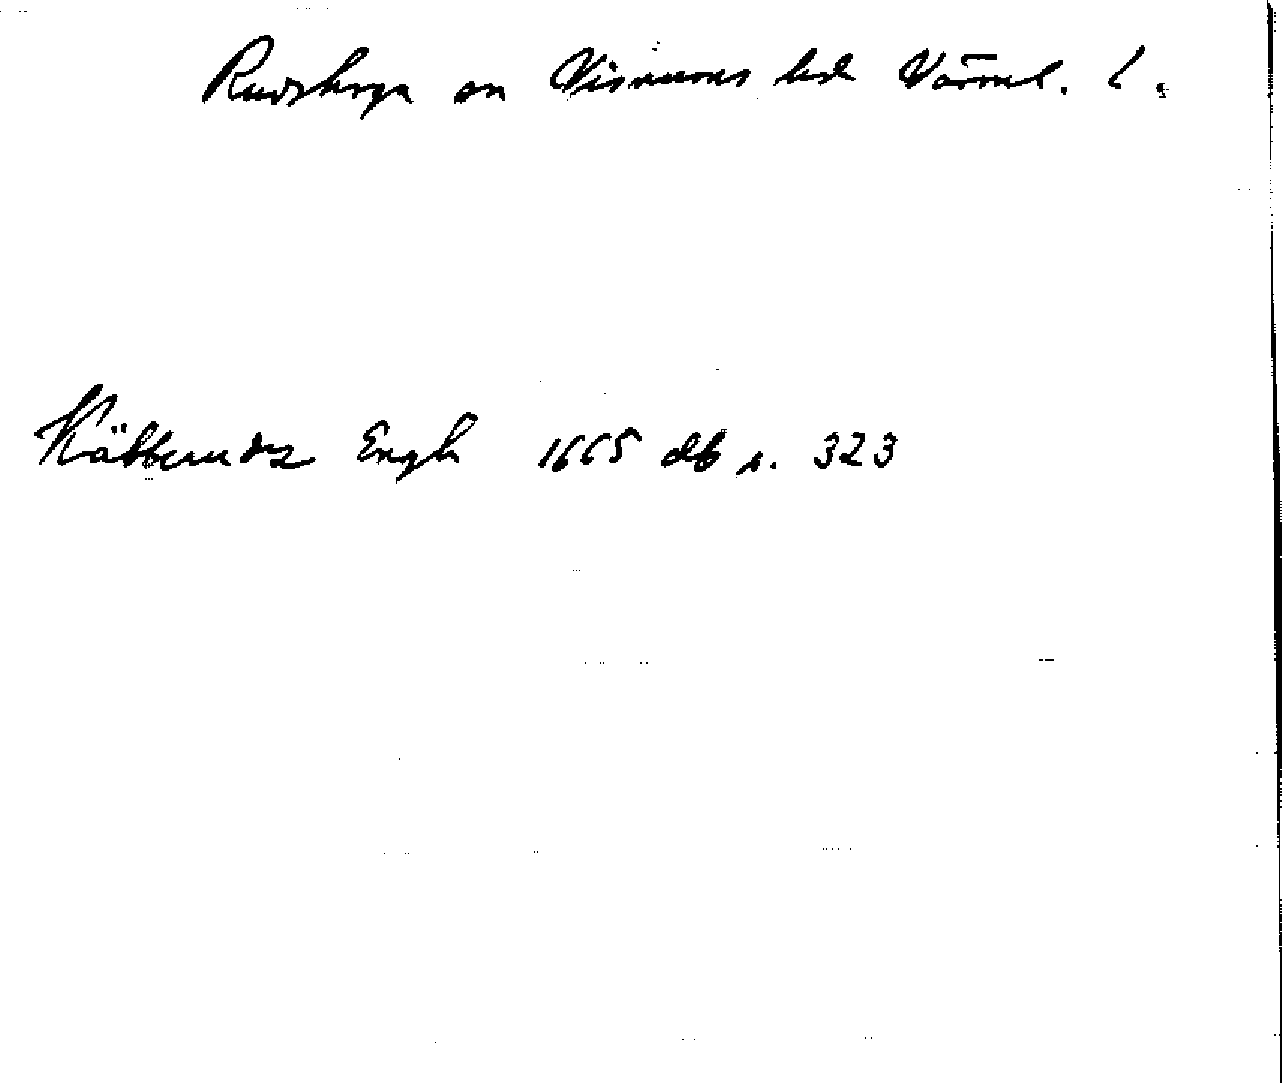 Rudskoga sn Visnums hd Värml. l.
Käbberudz Engh 1665 db s. 323